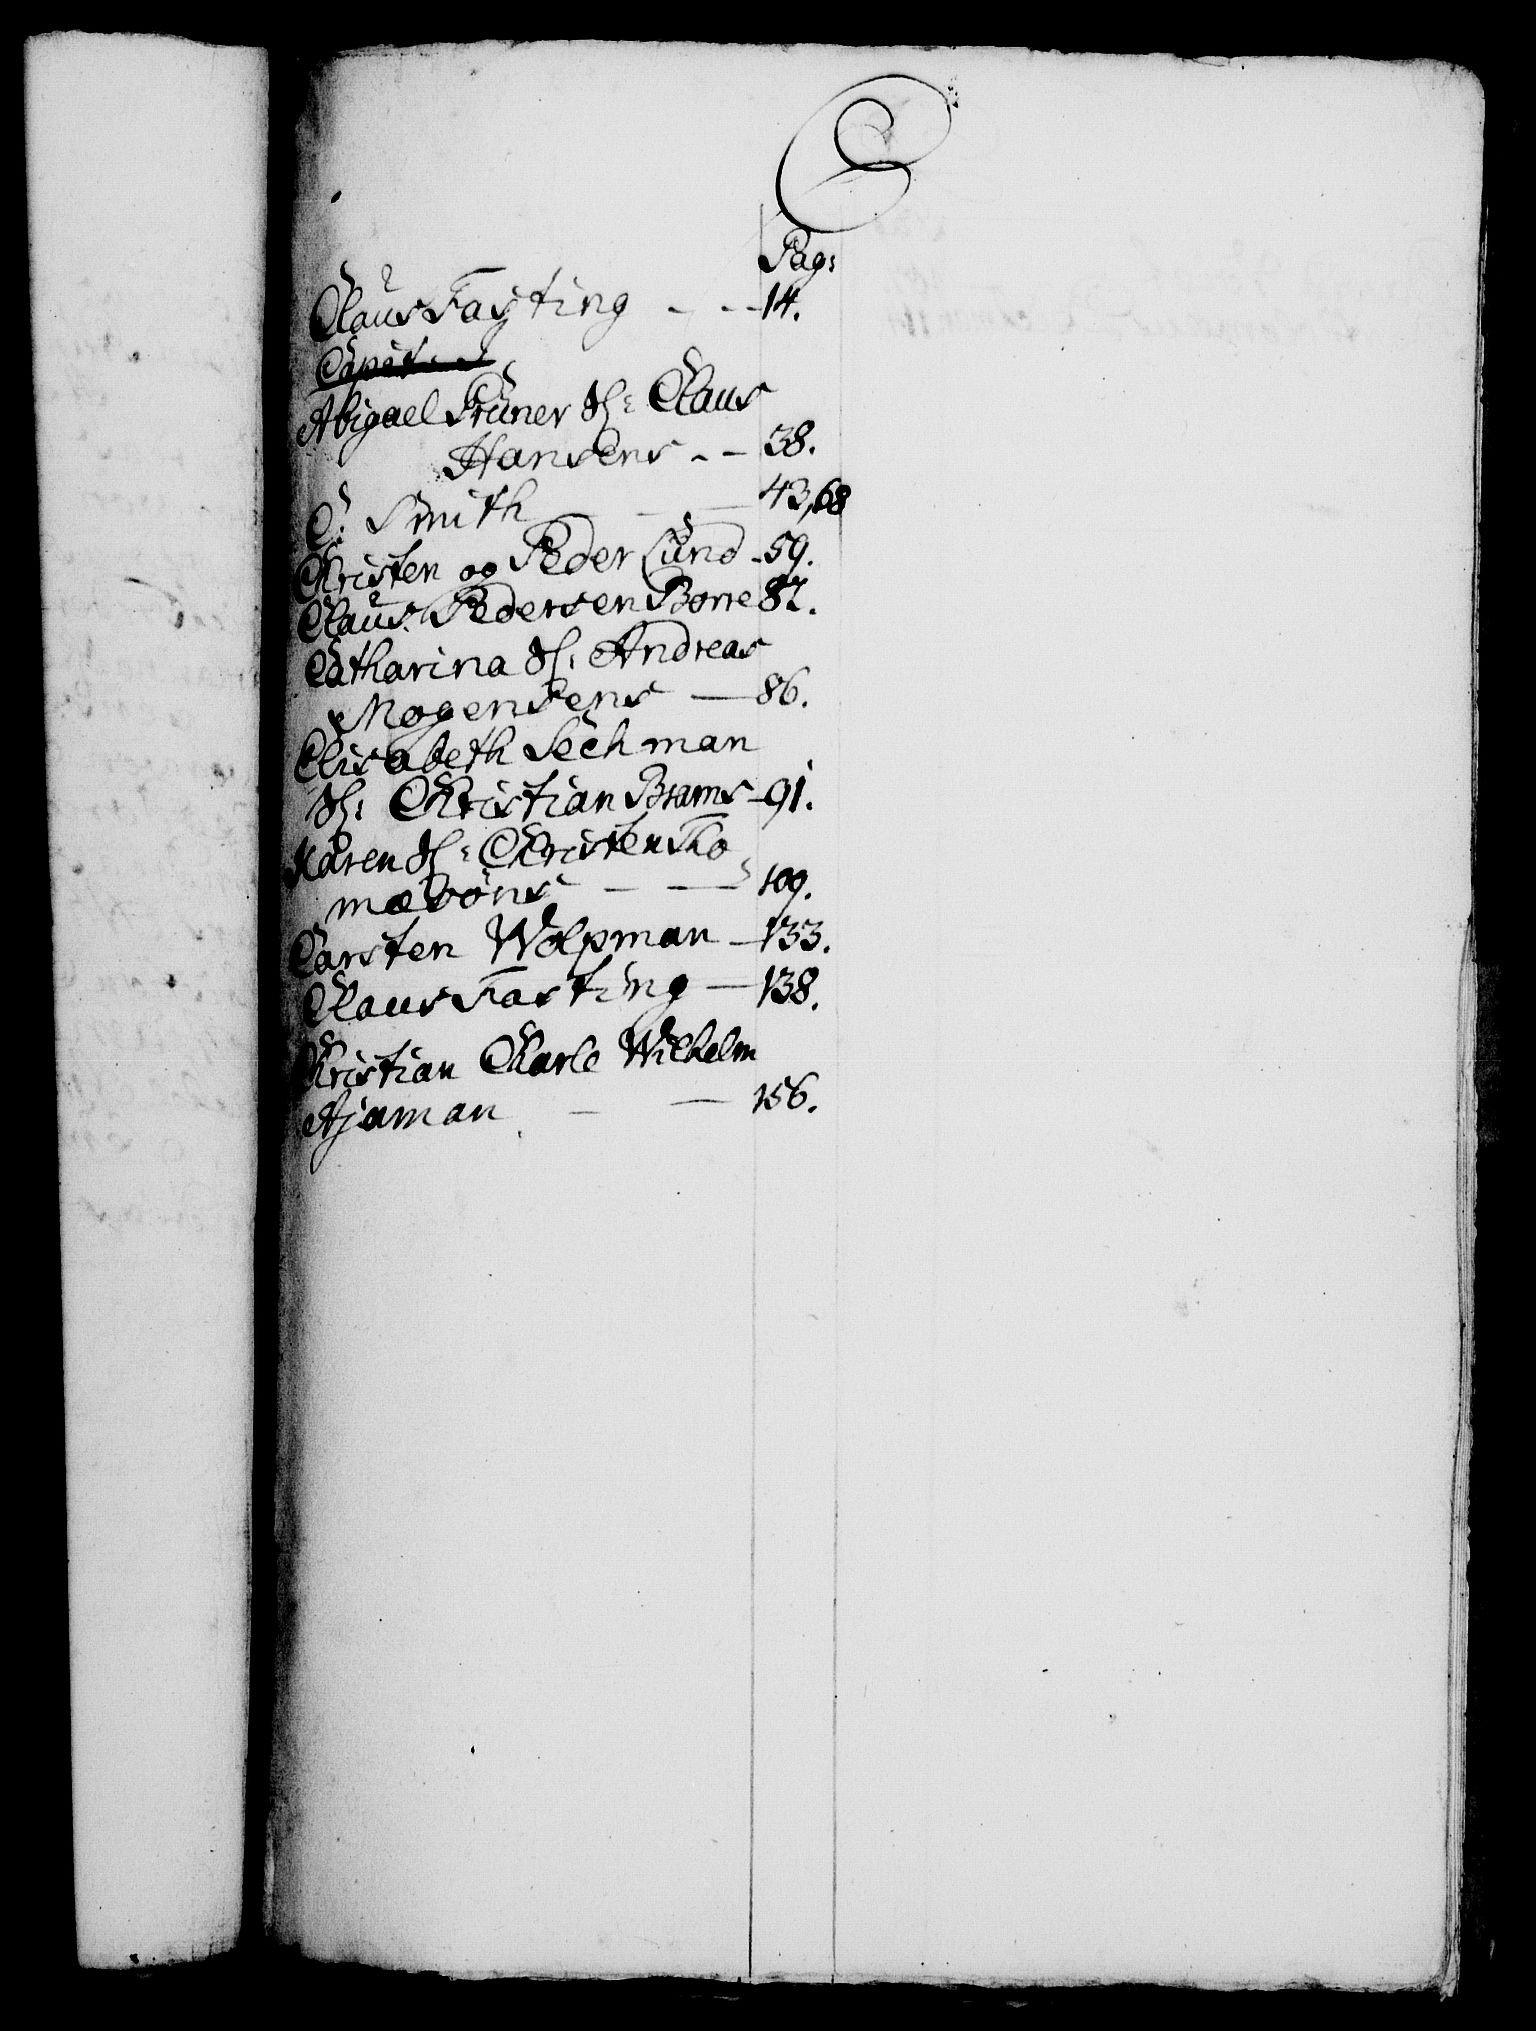 C
Pag:
Claus Fasting - - - 14.
Capit
Abigael Prüner Sl: Claus
Hansens - - 38.
C: Smith - - - 43,68
Christen og Peder Lund - 59.
Claus Pedersen Borre 82.
Catharina Sl: Andreas
Mogensens — 86.
Elisabeth Sechman
Sl: Christian Brams - 91.
Karen Sl: Christen Tho
mæsøns — — 109.
Carsten Wolpman — 133.
Claus Fasting — 138.
Christian Carle Wilhelm
Ajaman — — 156.